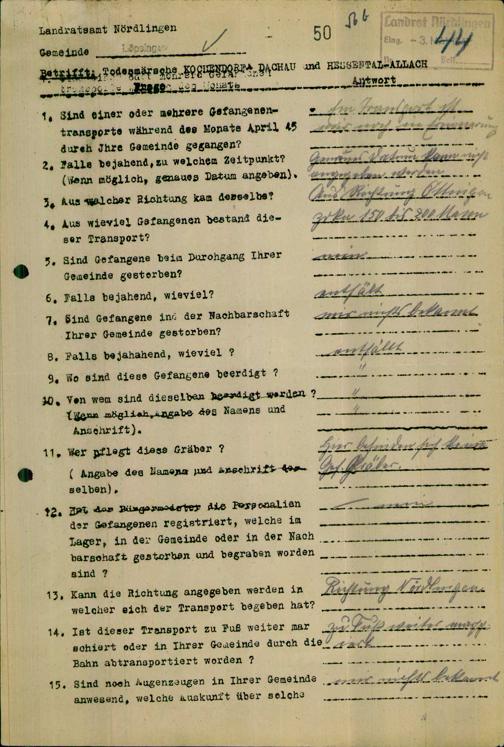 Landratsamt Nördlingen
Gemeinde Löpsingen
50
566
Landrat Nördlingen
Eing. - 3.
44
Betrifft: Todesmärsche KOCHENDORF - DACHAU und HESSENTAL-ALLACH
Frage
Antwort
1. Sind einer oder mehrere Gefangenen-
transporte während des Monats April 45
durch Jhre Gemeinde gegangen?
Ein Transport ist
mir noch in Erinnerung
2. Falls bejahend, zu welchem Zeitpunkt?
(Wenn möglich, genaues Datum angeben).
Genaues Datum kann nicht
angegeben werden
3. Aus welcher Richtung kam derselbe?
Aus Richtung Öttingen
4. Aus wieviel Gefangenen bestand die-
ser Transport?
zirka 150 bis 200 Mann
5. Sind Gefangene beim Durchgang Ihrer
Gemeinde gestorben?
nein
6. Falls bejahend, wieviel?
entfällt
7. Sind Gefangene ind der Nachbarschaft
Ihrer Gemeinde gestorben?
mir nichts bekannt
8. Falls bejahahend, wieviel ?
entfällt
9. Wo sind diese Gefangene beerdigt ?
"
10. Von wem sind dieselben beerdigt worden ?
(Wenn möglich, angabe des Namens und
Anschrift).
"
11. Wer pflegt diese Gräber ?
( Angabe des Namens und Anschrift des-
selben).
Hier befinden sich keine
Gräber.
12. Hat der Bürgermeister die Personalien
der Gefangenen registriert, welche im
Lager, in der Gemeinde oder in der Nach
barschaft gestorben und begraben worden
sind ?
nein
13. Kann die Richtung angegeben werden in
welcher sich der Transport begeben hat?
Richtung Nördlingen
14. Ist dieser Transport zu Fuß weiter mar
schiert oder in Ihrer Gemeinde durch die
Bahn abtransportiert worden ?
zu Fuß weiter
15. Sind noch Augenzeugen in Ihrer Gemeinde
anwesend, welche Auskunft über solche
mir nichts bekannt